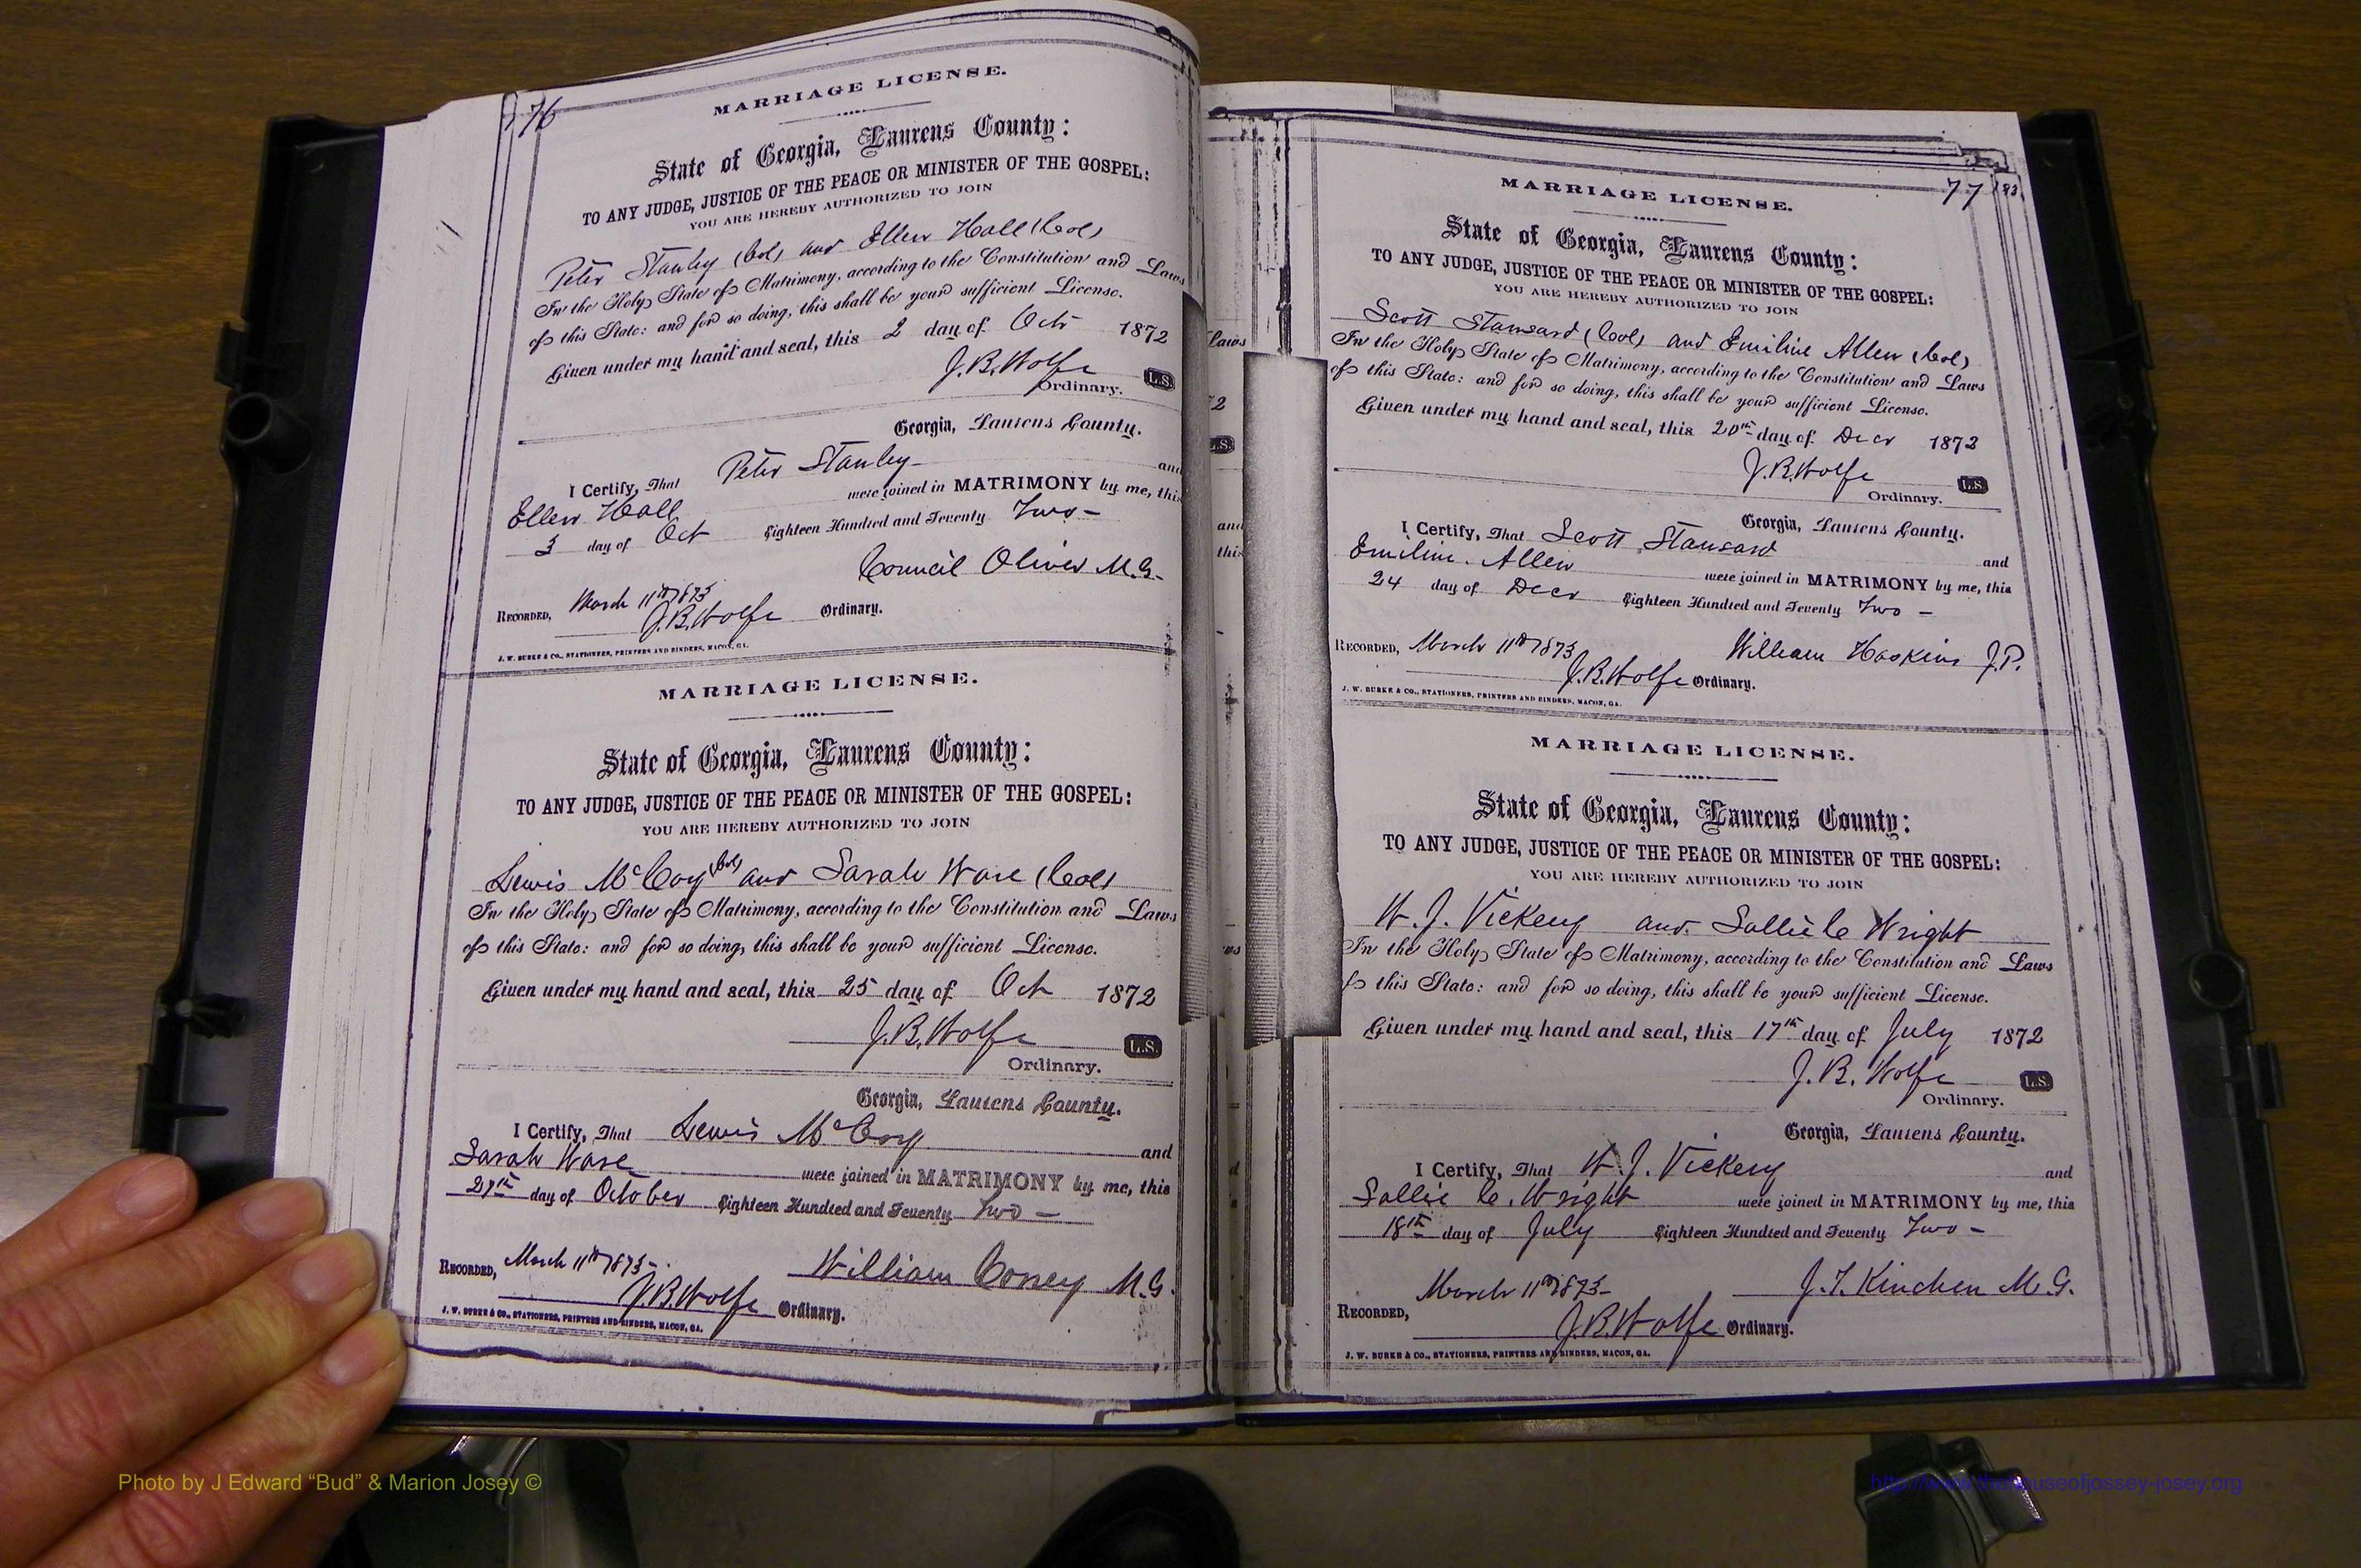 76
MARRIAGE LICENSE.
State of Georgia, Laurens County:
TO ANY JUDGE, JUSTICE OF THE PEACE OR MINISTER OF THE GOSPEL:
YOU ARE HEREBY AUTHORIZED TO JOIN
Peter Stanley (Col) and Ellen Hall (Col)
In the Holy State of Matrimony, according to the Constitution and Laws
of this State: and for so doing, this shall be your sufficient License.
Given under my hand and seal, this 2 day of Octr 1872
J.B. Wolfe
Ordinary. L.S.
Georgia, Laurens County.
I Certify, That Peter Stanley and
Ellen Hall were joined in MATRIMONY by me, this
3 day of Oct Eighteen Hundred and Seventy Two -
Council Oliver M.G.
RECORDED, March 11th 1873
J.B. Wolfe Ordinary.
J. W. BURKE & CO., STATIONERS, PRINTERS AND BINDERS, MACON, GA.
MARRIAGE LICENSE.
State of Georgia, Laurens County:
TO ANY JUDGE, JUSTICE OF THE PEACE OR MINISTER OF THE GOSPEL:
YOU ARE HEREBY AUTHORIZED TO JOIN
Lewis McCoy (Col) and Sarah Ware (Col)
In the Holy State of Matrimony, according to the Constitution and Laws
of this State: and for so doing, this shall be your sufficient License.
Given under my hand and seal, this 25 day of Oct 1872
J.B. Wolfe
L.S.
Ordinary.
Georgia, Laurens County.
I Certify, That Lewis McCoy and
Sarah Ware were joined in MATRIMONY by me, this
27th day of October Eighteen Hundred and Seventy Two -
RECORDED, March 11th 1873- William Coney M.G.
J.B. Wolfe Ordinary.
J. W. BURKE & CO., STATIONERS, PRINTERS AND BINDERS, MACON, GA.
77
MARRIAGE LICENSE.
State of Georgia, Laurens County:
TO ANY JUDGE, JUSTICE OF THE PEACE OR MINISTER OF THE GOSPEL:
YOU ARE HEREBY AUTHORIZED TO JOIN
Scott Stansard (Col) and Emiline Allen (Col)
In the Holy State of Matrimony, according to the Constitution and Laws
of this State: and for so doing, this shall be your sufficient License.
Given under my hand and seal, this 20th day of Decr 1872
J.B. Wolfe
Ordinary. L.S.
Georgia, Laurens County.
I Certify, That Scott Stansard and
Emiline Allen were joined in MATRIMONY by me, this
24 day of Decr Eighteen Hundred and Seventy Two -
RECORDED, March 11th 1873 William Haskins J.P.
J.B. Wolfe Ordinary.
J. W. BURKE & CO., STATIONERS, PRINTERS AND BINDERS, MACON, GA.
MARRIAGE LICENSE.
State of Georgia, Laurens County:
TO ANY JUDGE, JUSTICE OF THE PEACE OR MINISTER OF THE GOSPEL:
YOU ARE HEREBY AUTHORIZED TO JOIN
W. J. Vickery and Sallie C Wright
In the Holy State of Matrimony, according to the Constitution and Laws
of this State: and for so doing, this shall be your sufficient License.
Given under my hand and seal, this 17th day of July 1872
J. B. Wolfe
L.S.
Ordinary.
Georgia, Laurens County.
I Certify, That W. J. Vickery and
Sallie C. Wright were joined in MATRIMONY by me, this
18th day of July Eighteen Hundred and Seventy Two -
March 11th 1873- J. T. Kinchen M.G.
RECORDED,
J.B. Wolfe Ordinary.
J. W. BURKE & CO., STATIONERS, PRINTERS AND BINDERS, MACON, GA.
Photo by J Edward “Bud” & Marion Josey ©
http://www.thehouseofjossey-josey.org